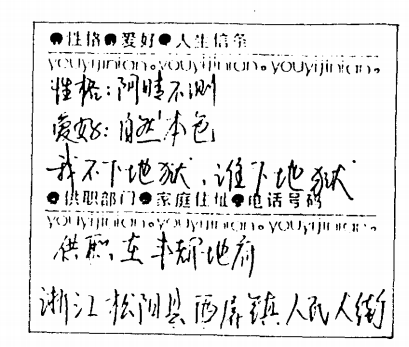 ●性格●爱好●人生信条
youyijinian。youyijinian。youyijinian。
性格:阴晴不测
爱好:自然本色
我不下地狱,谁下地狱
●供职部门●家庭住址●电话号码
youyijinian。youyijinian。youyijinian。
供职:在丰都地府
浙江松阳县西屏镇人民大街